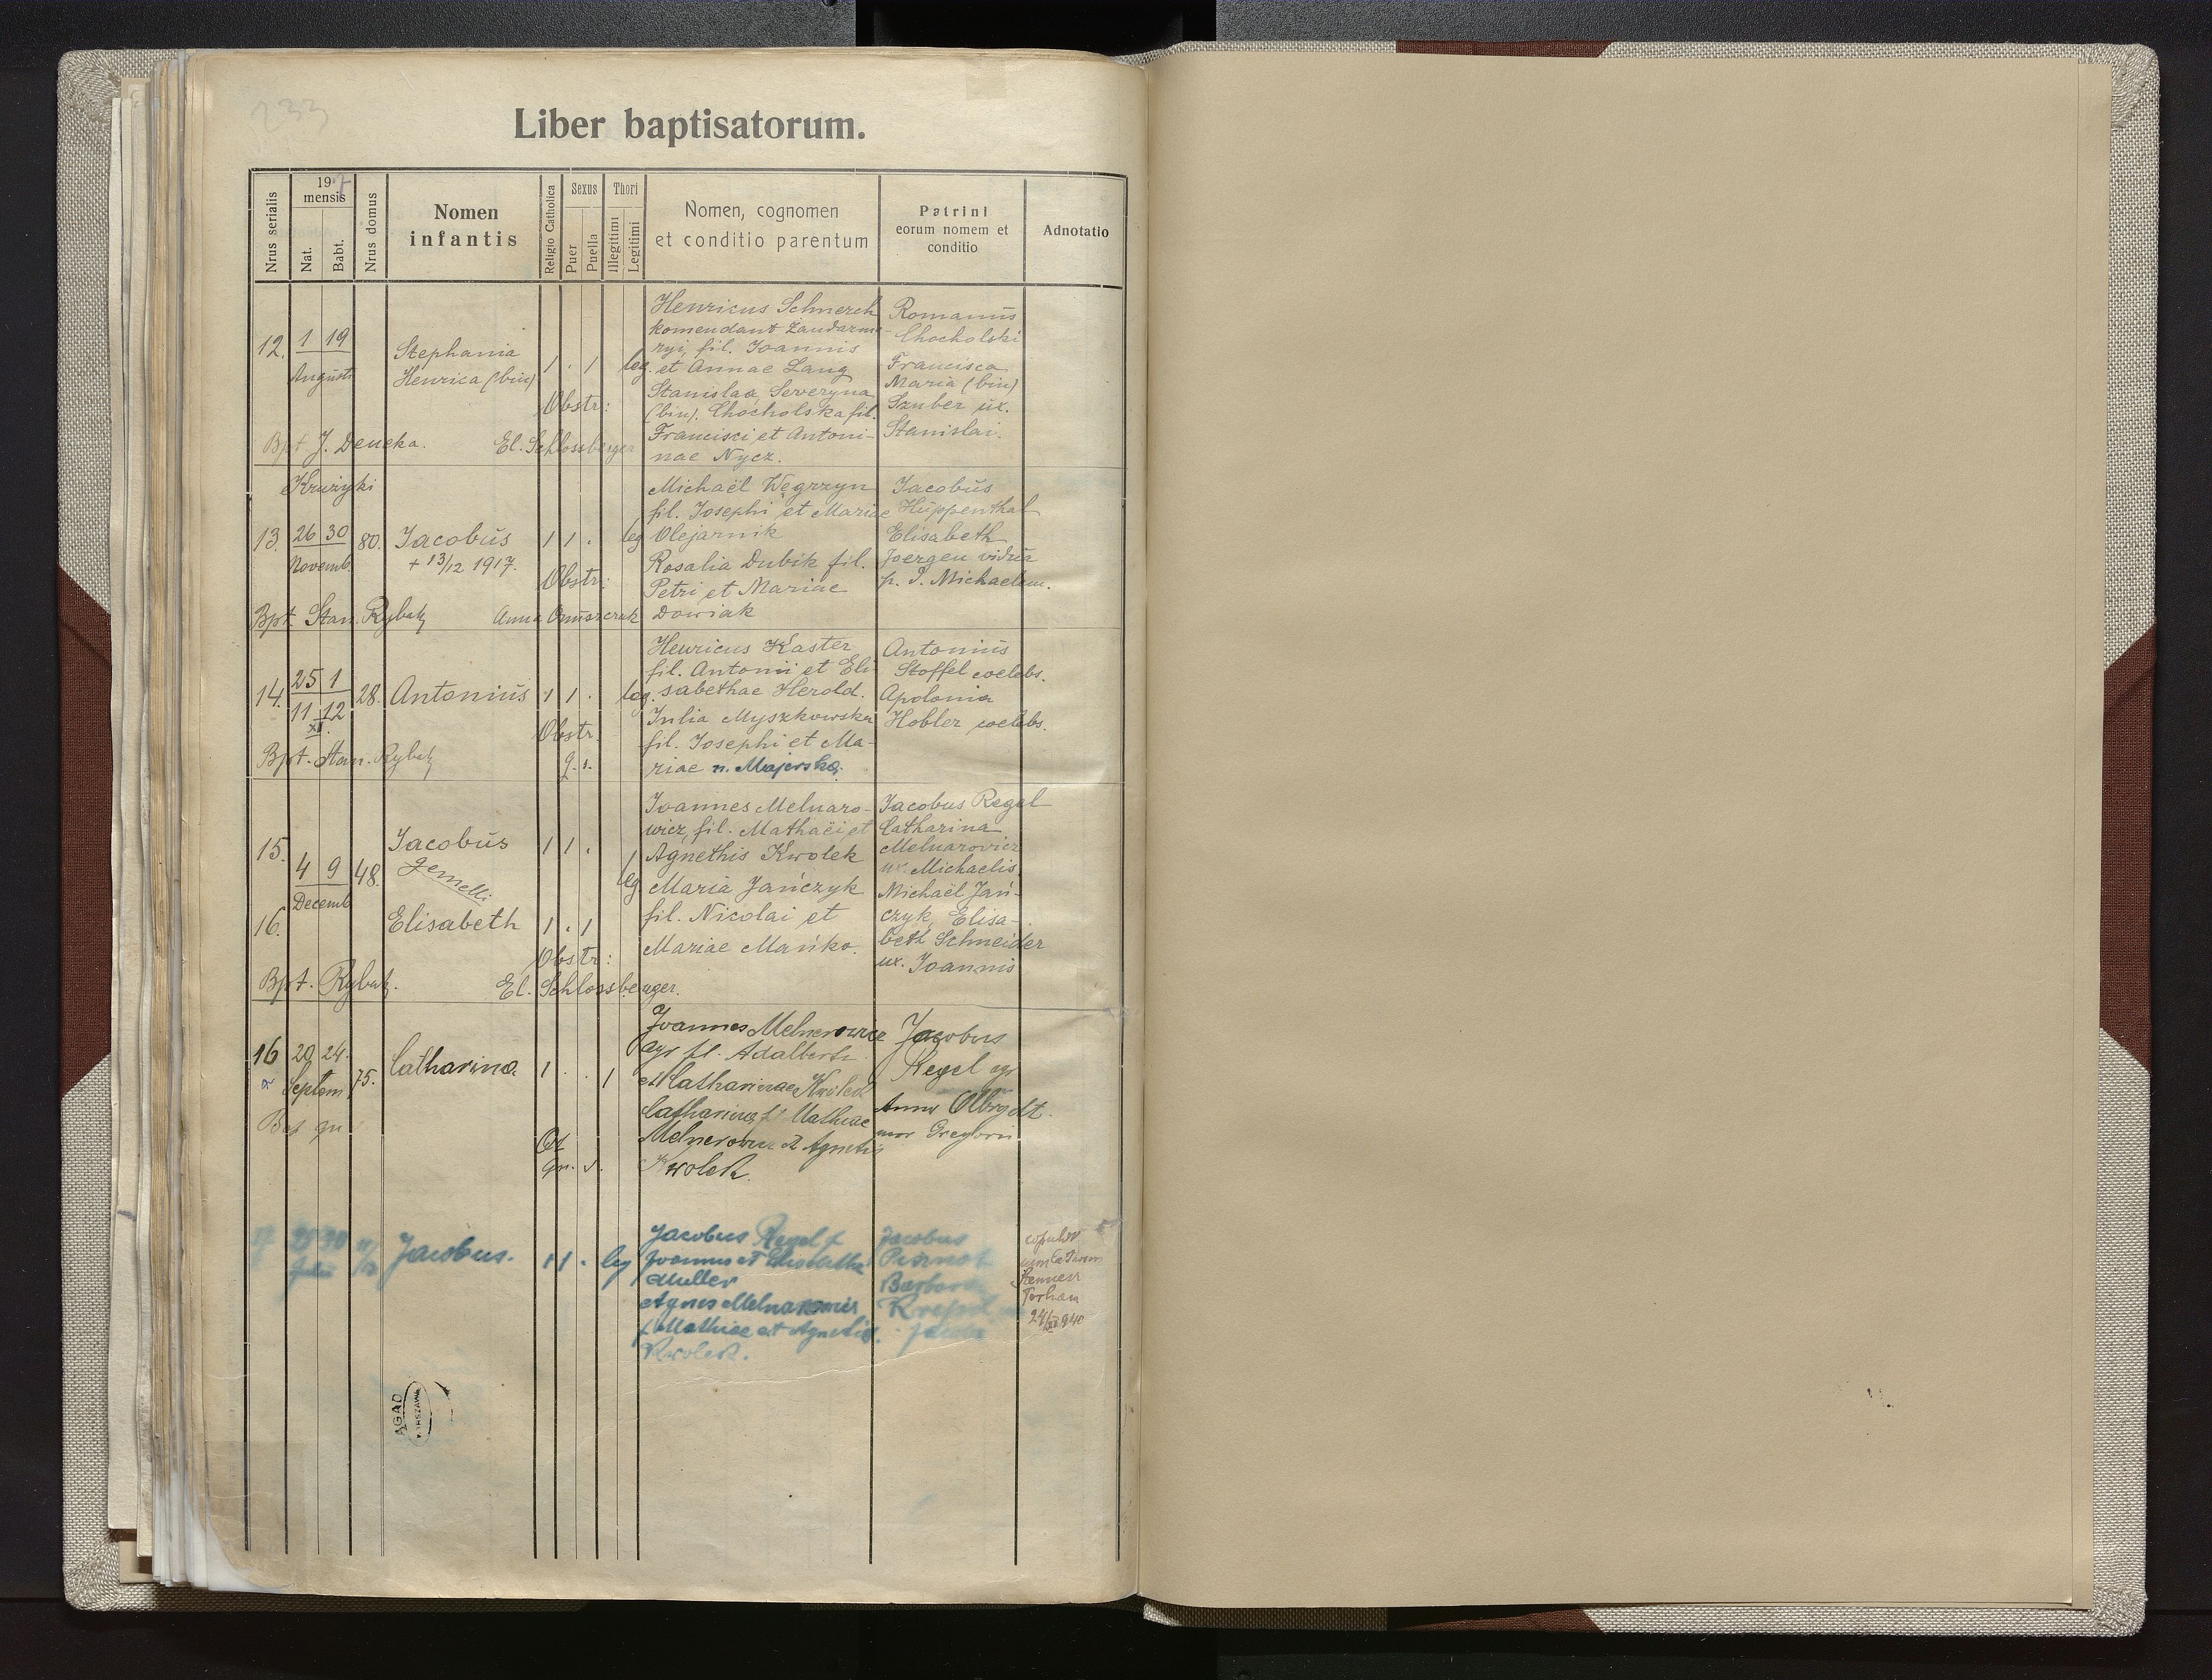 233
Liber baptisatorum.
Nrus serialis
197
mensis
Nat.
Babt.
Nrus domus
Nomen
infantis
Religio Catholica
Sexus
Puer
Puella
Thori
Illegitimi
Legitimi
Nomen, cognomen
et conditio parentum
Patrini
eorum nomem et
conditio
Adnotatio
12. 1 19
Augusti
Stephania
Henrica (bin)
1 . 1 leg.
Obstr:
El. Schlossberger
Bpt J. Deneka.
Henricus Schnerch
komendant żandarme-
ryi, fil. Joannis
et Annae Lang
Stanislaa, Severyna
(bin). Chocholska fil.
Francisci et Antoni-
nae Nycz.
Romanus
Chocholski
Francisca
Maria (bin)
Szuber ux.
Stanislai.
Krużyki
13. 26 30 80.
Novemb.
Jacobus
+ 13/12 1917.
1 1 . leg
Obstr:
Bpt. Stan. Rybak
Anna
Michaël Węgrzyn
fil. Josephi et Mariae
Olejarnik
Rosalia Dubik fil.
Petri et Mariae
Dowiak
Jacobus
Huppenthal
Elisabeth
Joergen vidua
p. d. Michaelem.
14. 25 1 28.
11 12
XI.
Antonius
1 1 . leg.
Obstr.
q. s.
Bpt. Stan. Rybak
Henricus Kaster
fil. Antonii et Eli-
sabethae Herold.
Julia Myszkowska
fil. Josephi et Ma-
riae n. Majerska.
Antonius
Stoffel coelebs.
Apolonia
Hobler coelebs.
15.
4 9 48.
Decemb
16.
Jacobus
Gemelli
Elisabeth
1 1 .
leg.
1 . 1
Obstr:
El. Schlossberger.
Bpt. Rybak.
Joannes Melnaro-
wicz, fil. Mathaëi et
Agnethis Kwolek
Maria Jańczyk
fil. Nicolai et
Mariae Mańko.
Jacobus Regel
Catharina
Melnarovicz
ux. Michaelis.
Michaël Jań-
czyk, Elisa-
beth Schneider
ux. Joannis
16 20 24.
a Septem 75.
Catharina
1 . . 1
Joannes Melnerowicz
agr fil. Adalberti
et Catharinae Kwolek
Catharina f. Mathiae
Melnerowicz et Agnetis
Kwolek.
Jacobus
Regel agr
Anna Olbrycht
uxor Gregorii
17 30
Julii
Jacobus.
1 1 . leg
Jacobus Regel f
Joannis et Elisabethae
Muller
Agnes Melnarowicz
f Mathiae et Agnetis
Kwolek.
Jacobus
Barbara
Jacobi
24/XI 940
AGAD
WARSZAWA